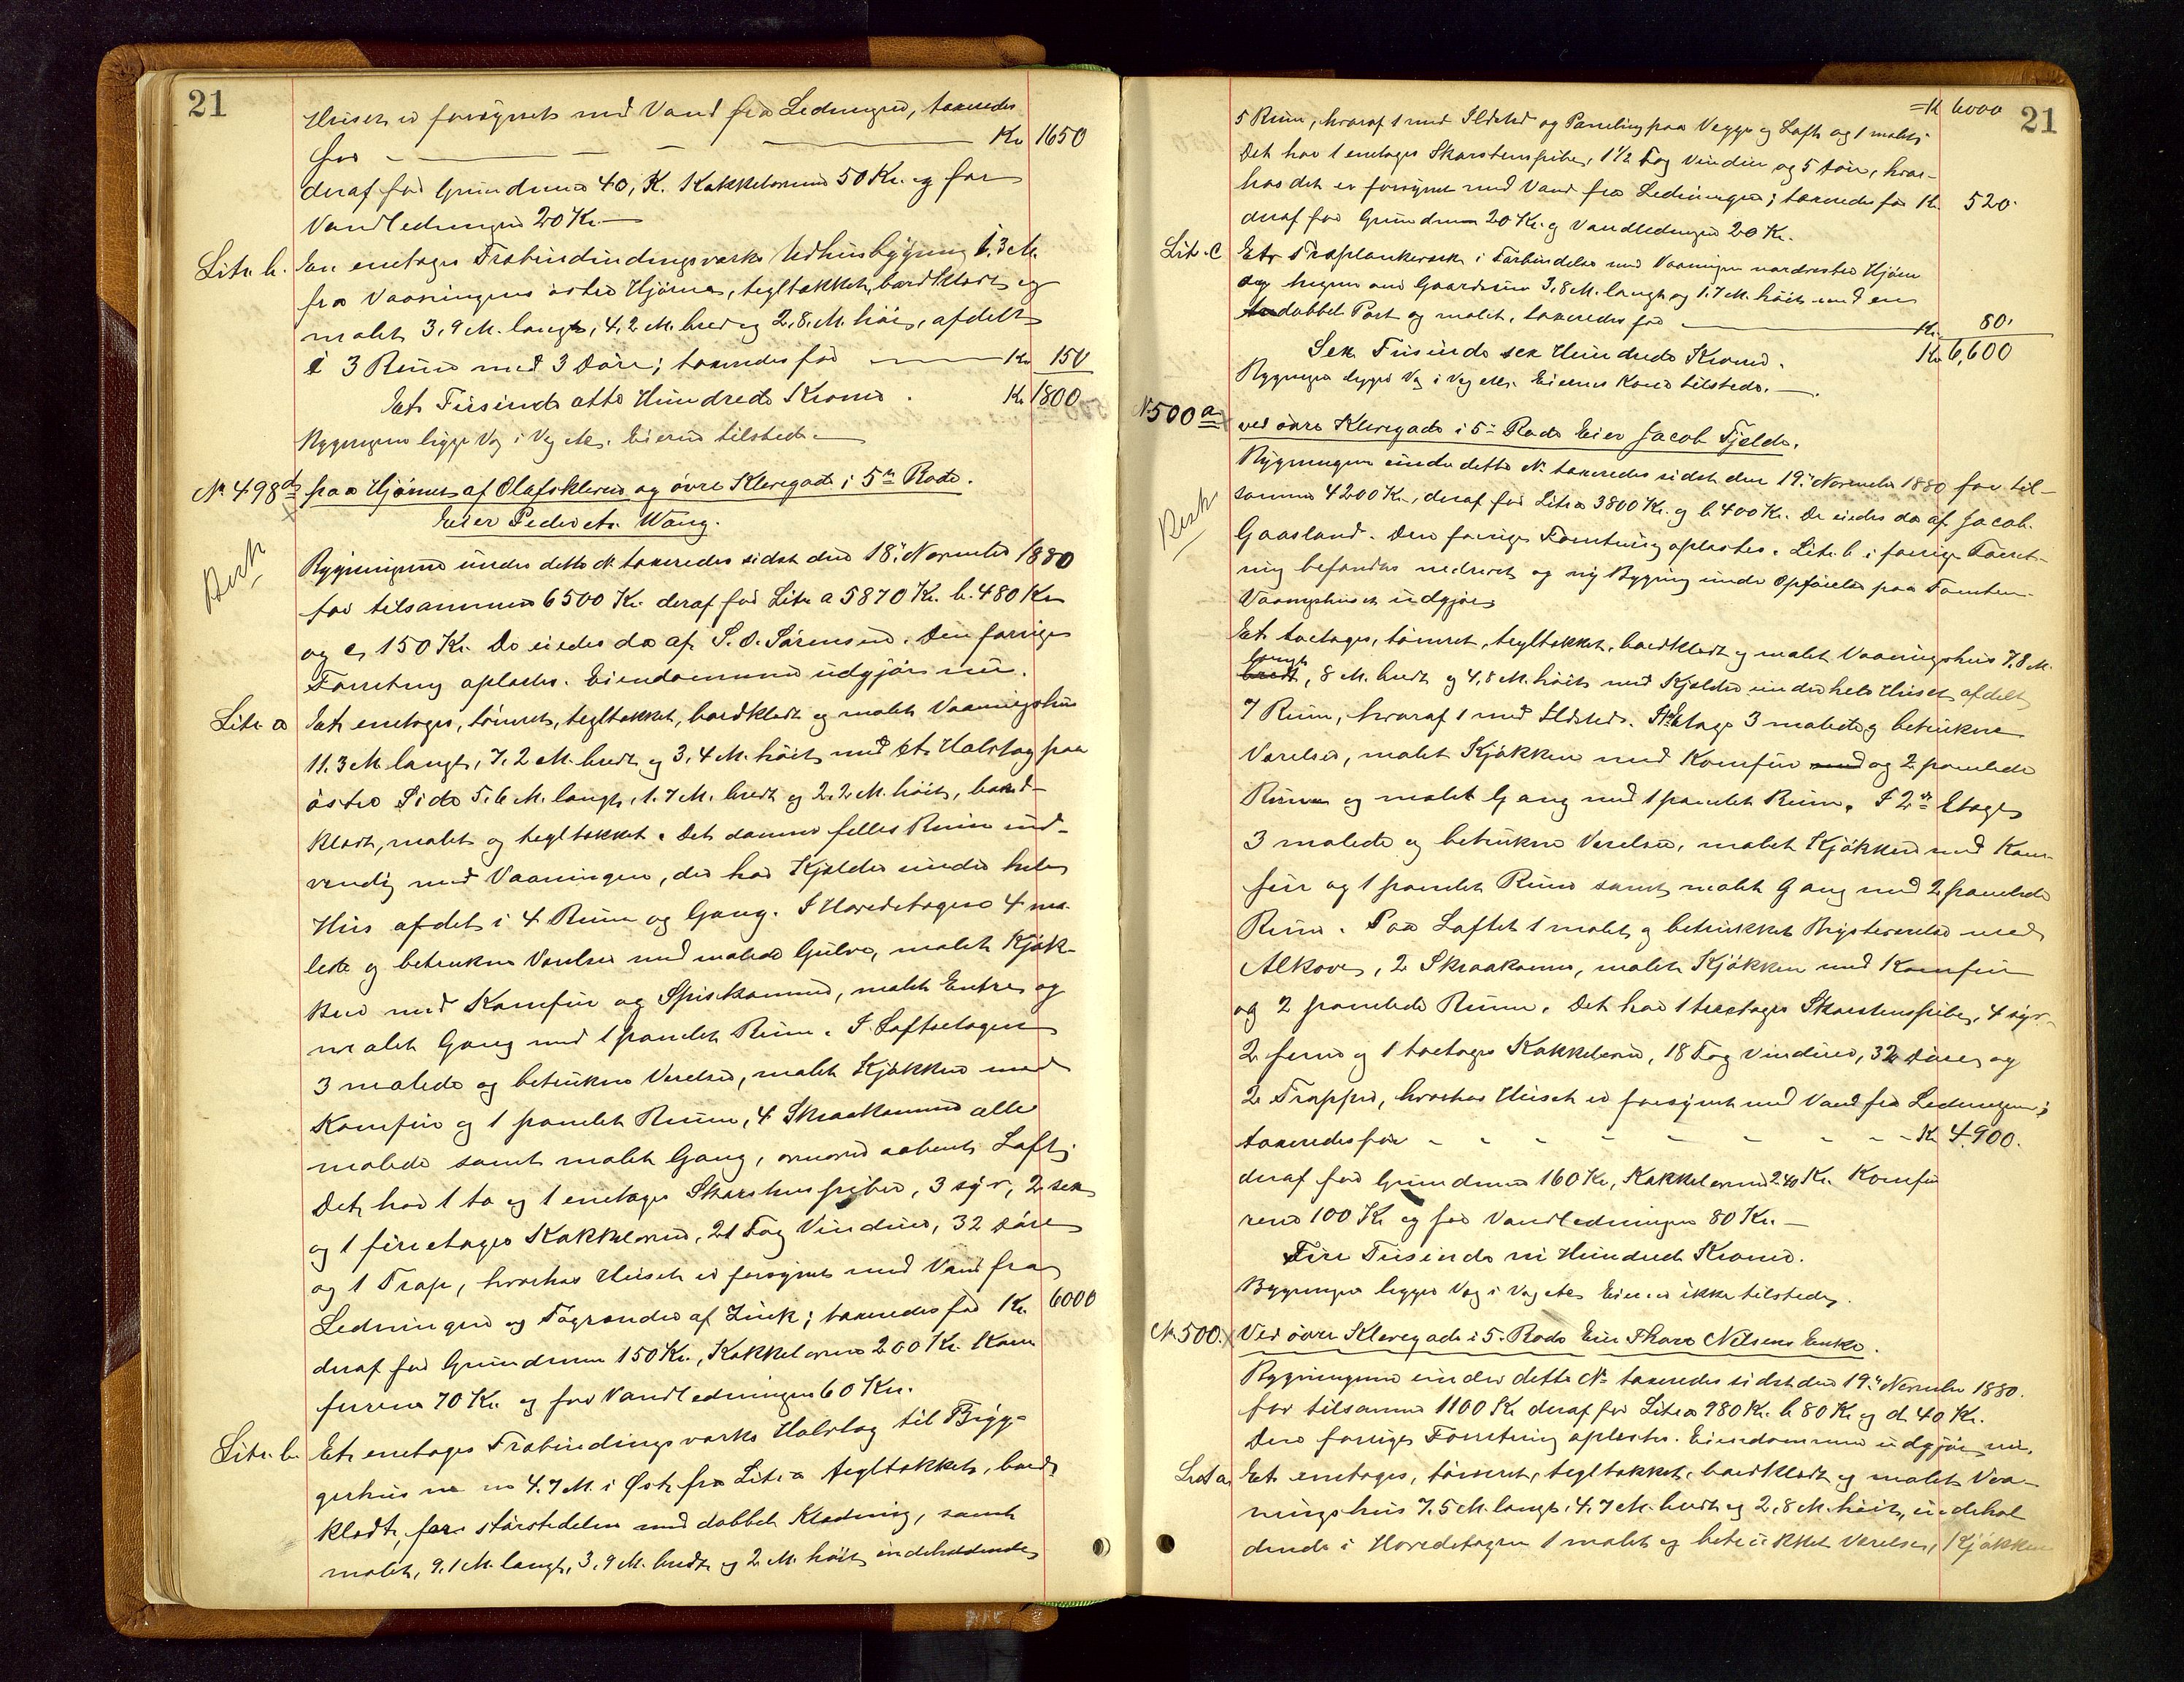 21
Huset er forsynet med Vand fra Ledningen, taxeredes
for - Kr 1650
deraf for Grundmur 40, K. Kakkelovnene 50 Kr. og for
Vandledningen 20 Kr.
Litr b. En enetages Træbindingsværks Udhusbygning 1.3 M.
fra Vaaningens østre Hjørne, tegltækket, bordklædt og
malet 3,9 M. langt, 4,2 M. bred og 2,8 M. høi, afdelt
i 3 Rum med 3 Døre; taxeredes for Kr 150
Et Tusinde otte Hundrede Kroner. Kr 1800
Bygningerne ligge Væg i Væg etc. Eieren tilstede.
No 498d paa Hjørnet af Olafskleven og øvre Klevegade i 5te Rode.
Eier Peder A. Wang.
Besk
Bygningerne under dette No taxeredes sidst den 18. November 1880
for tilsammen 6500 Kr. deraf for Litr a 5870 Kr. b. 480 Kr
og c, 150 Kr. De eiedes da af S. O. Sørensen. Den forrige
Forretning oplæstes. Eiendommen udgjør nu.
Litr a Et enetages, tømret, tegltækket, bordklædt og malet Vaaningshus
11.3 M langt, 7.2 M. bredt og 3,4 M. høit med et Halvtag paa
østre Side 5.6 M. langt, 1.7 M. bredt og 2.2 M. høit, bord-
klædt, malet og tegltækket. Det danner fælles Rum ind-
vendig med Vaaningen, der har Kjælder under hele
Hus afdelt i 4 Rum og Gang. I Hovedetagen 4 ma-
lede og betrukne Værelser med malede Gulve, malet Kjøk-
ken med Komfur og Spiskammer, malet Entre og
malet Gang med 1 panelet Rum. I Loftsetagen
3 malede og betrukne Værelser, malet Kjøkken med
Komfur og 1 panelet Rum, 4 Skraakammer alle
malede samt malet Gang, ovenover aabent Loft.
Det har 1 to og 1 enetages Skorstenspiber, 3 syv, 2 sex
og 1 fireetages Kakkelovne, 21 Fag Vinduer, 32 Døre
og 1 Trap, hvorhos Huset er forsynet med Vand fra
Ledningen og Tagrender af Zink; taxeredes for Kr. 6000
deraf for Grundmur 150 Kr., Kakkelovne 200 Kr. Kom
furene 70 Kr. og for Vandledningen 60 Kr.
Litr. b. Et enetages Træbindingsværks Halvtag til Bryg-
gerhus 4.7 M. i Øst fra Litr a tegltækket, bord-
klædt, for størstedelen med dobbelt Klædning, samt
malet, 9,1 M. langt, 3,9 M. bredt og 2 M. høit indeholdende
= K 6000 21
5 Rum, hvoraf 1 med Ildsted og Paneling paa Vægge og Loft og 1 malet.
Det har 1 enetages Skorstenspibe, 1 1/2 Fag Vinduer og 5 Døre, hvor-
hos det er forsynet med Vand fra Ledningen; taxeredes for Kr. 520
deraf for Grundmur 20 Kr. og Vandledningen 20 Kr.
Litr. C Et Træplankeværk i Forbindelse med Vaaningens nordvestre Hjørne
og hegner om Gaardsrum 3,8 M. langt og 1.7 M. høit med en
dobbel Port og malet, taxeredes for Kr. 80.
Sex Tusinde sex Hundrede Kroner. Kr 6,600
Bygningen ligger Væg i Væg etc. Eierens Kone tilstede.
N 500a ved øvre Klevegade i 5te Rode Eier Jacob Fjelde.
Besk
Bygningen under dette No taxeredes sidst den 19. November 1880 for til-
sammen 4200 Kr., deraf for Litr a 3800 Kr. og b 400 Kr. De eiedes da af Jacob
Gaasland. Den forrige Forretning oplæstes. Litr. b i forrige Forret-
ning befandtes nedrevet og ny Bygning under Opførelse paa Tomten.
Vaaningshuset udgjør
Et toetages, tømret, tegltækket, bordklædt og malet Vaaningshus 7,8 M.
langt, 8 M. bredt og 4,8 M. høit med Kjælder under hele Huset afdelt
7 Rum, hvoraf 1 med Ildsted. I 1ste Etage 3 malede og betrukne
Værelser, malet Kjøkken med Komfur og 2 panelede
Rum og malet Gang med 1 panelet Rum. I 2den Etage
3 malede og betrukne Værelser, malet Kjøkken med Kom-
fur og 1 panelet Rum samt malet Gang med 2 panelede
Rum. Paa Loftet 1 malet og betrukket Kvistværelse med
Alkove, 2 Skraakamre, malet Kjøkken med Komfur
og 2 panelede Rum. Det har 1 treetages Skorstenspibe, 4 syv-
2 fem og 1 toetages Kakkelovne, 18 Fag Vinduer, 32 Døre og
2 Trapper, hvorhos Huset er forsynet med Vand fra Ledningen;
taxeredes for - - - - - - - - K 4900.
deraf for Grundmur 160 Kr, Kakkelovne 240 Kr. Komfu
rene 100 Kr og for Vandledningen 80 Kr.
Fire Tusinde ni Hundrede Kroner.
Bygningen ligger Væg i Væg etc Eieren ikke tilstede.
No 500. Ved øvre Klevegade i 5. Rode Eier Thore Nilsens Enke.
Bygningerne under dette No taxeredes sidst den 19. November 1880.
for tilsammen 1100 Kr deraf for Litr a 980 Kr. b 80 Kr og d 40 Kr.
Den forrige Forretning oplæstes. Eiendommen udgjør nu.
Litr a Et enetages, tømret, tegltækket, bordklædt og malet Vaa-
ningshus 7,5 M. langt, 4.7 M. bredt og 2,8 M. høit, indehol
dende i Hovedetagen 1 malet og betrukket Værelse, Kjøkken